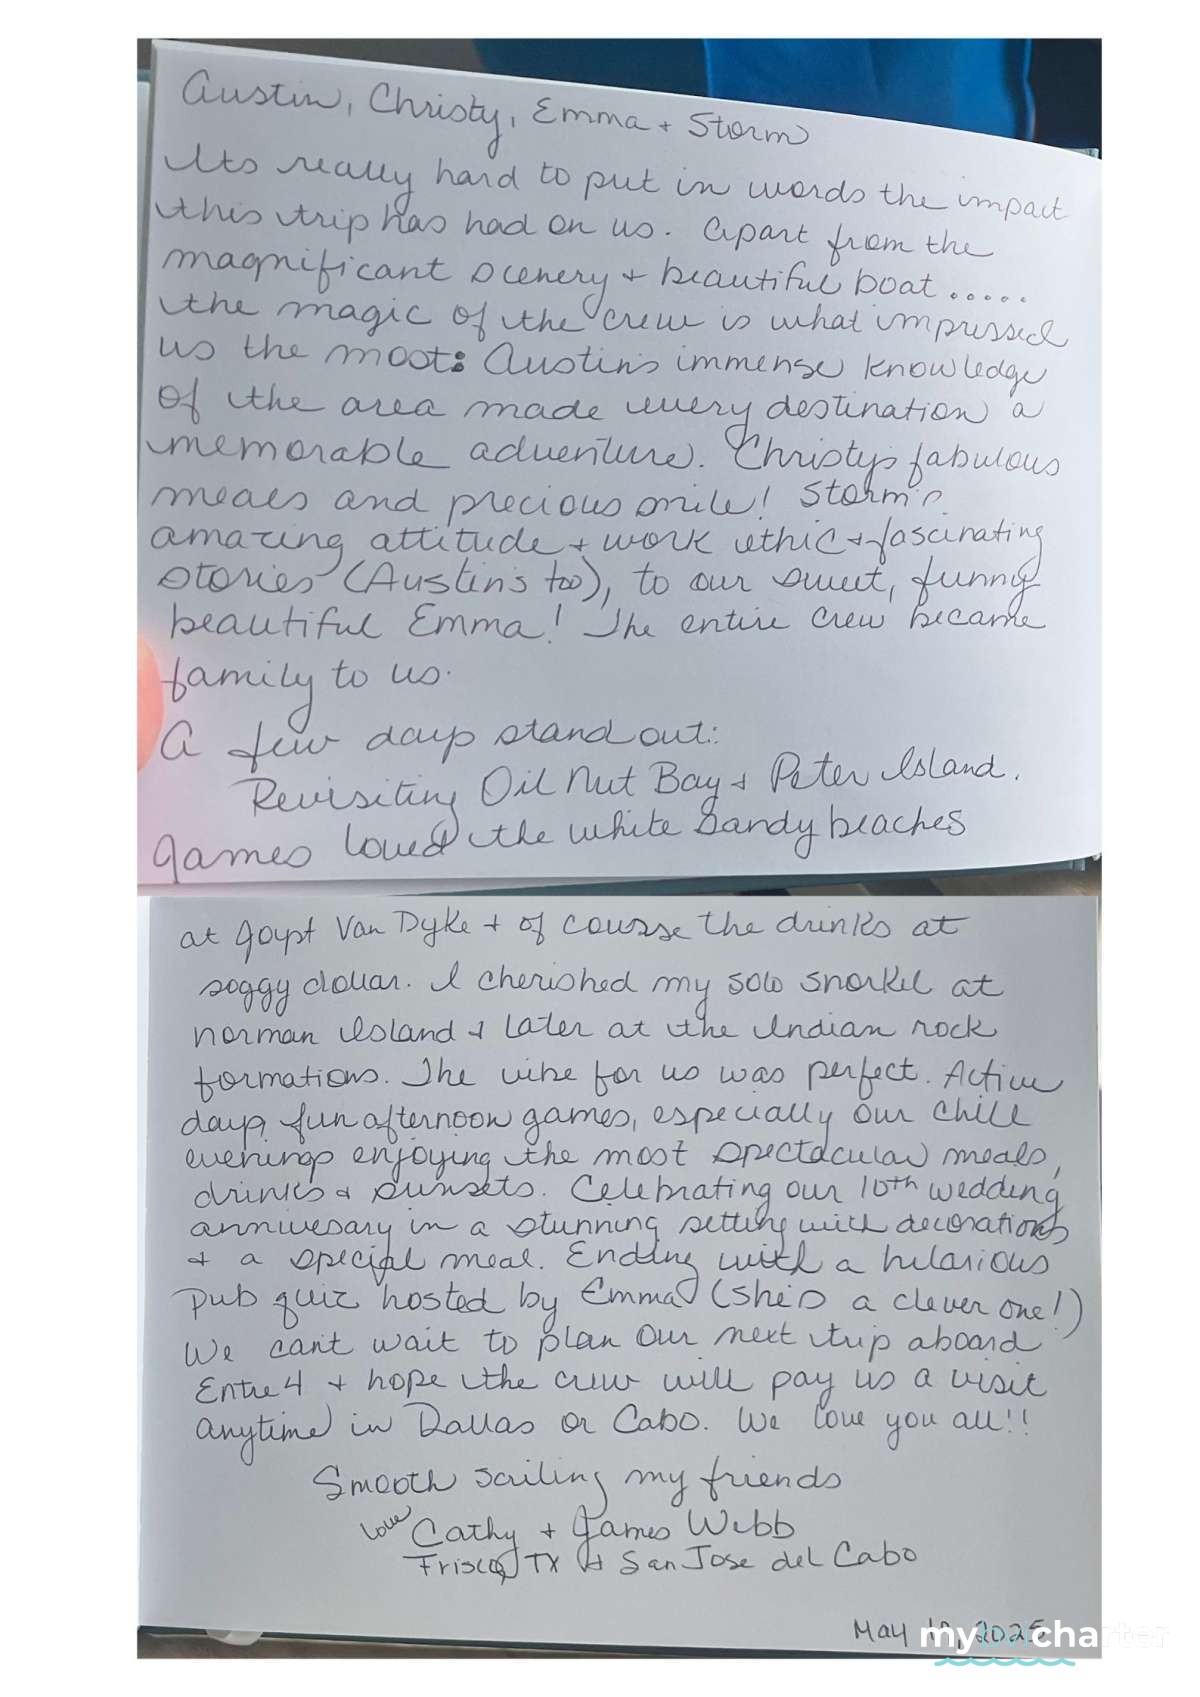 Austin, Christy, Emma + Storm
Its really hard to put in words the impact
this trip has had on us. Apart from the
magnificant scenery + beautiful boat.....
the magic of the crew is what impressed
us the most: Austin's immense knowledge
of the area made every destination a
memorable adventure. Christy's fabulous
meals and precious smile! Storm's
amazing attitude + work ethic + fascinating
stories (Austin's too), to our sweet, funny
beautiful Emma! The entire crew became
family to us.
A few days stand out:
Revisiting Oil Nut Bay + Peter Island.
James loved the white sandy beaches
at Van Dyke + of course the drinks at
soggy dollar. I cherished my solo snorkel at
Norman Island + later at the Indian rock
formations. The vibe for us was perfect. Active
days, fun afternoon games, especially our chill
evenings enjoying the most spectacular meals,
drinks + sunsets. Celebrating our 10th wedding
annivesary in a stunning setting with decorations
+ a special meal. Ending with a hilarious
pub quiz hosted by Emma (she's a clever one!)
We can't wait to plan our next trip aboard
Entre 4 + hope the crew will pay us a visit
anytime in Dallas or Cabo. We love you all!!
Smooth sailing my friends
love Cathy + James Webb
Frisco, TX + San Jose del Cabo
May 2025
my charter